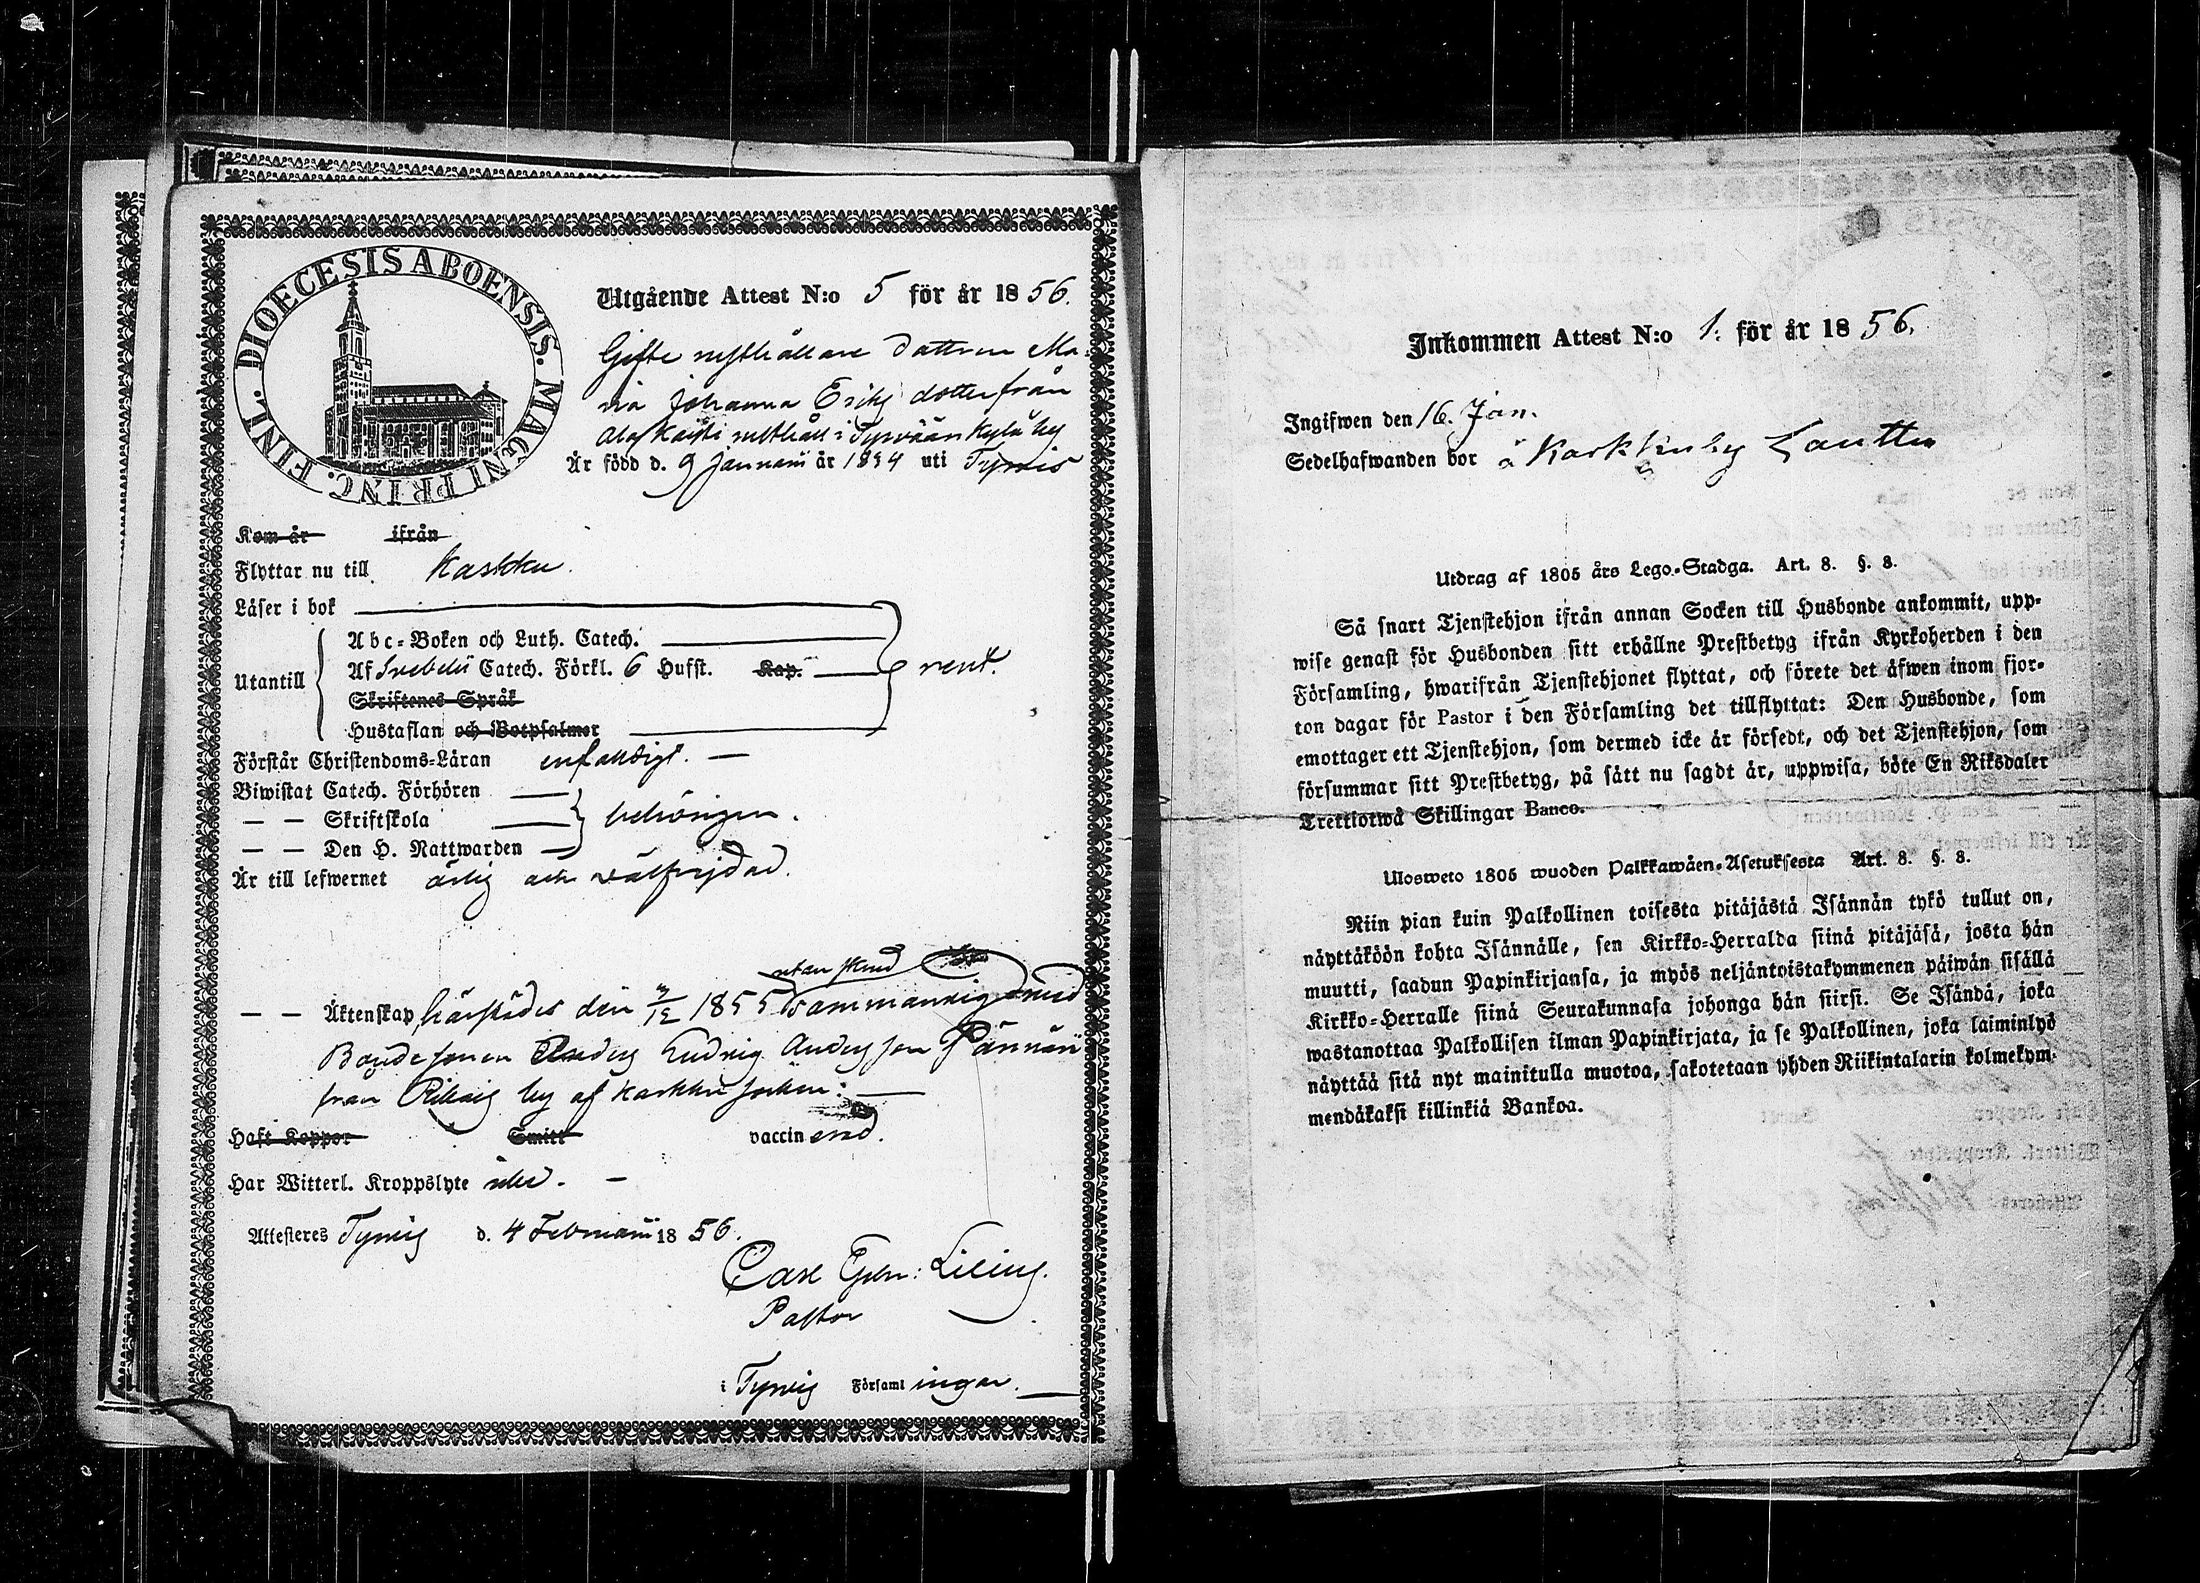 DIOECESIS ABOENSIS. MAGNI PRINC. FINL.
Utgående Attest N:o 5 för år 1856.
Gifte rusthållare Dottren Ma-
ria Johanna Eriks dotter från
Ala Kaisti rusthåll i Tyrväänkylä by
Är född d. 9 Januarii år 1834 uti Tyrvis
Kom år ifrån
Flyttar nu till Karkku.
Läser i bok
Utantill
Abc-Boken och Luth. Catech.
Af Svebelii Catech. Förkl. 6 Hufst. Kap.
rent.
Skriftenes Språk
Hustaflan och Botpsalmer
Förstår Christendoms-Läran enfaldigt. —
Biwistat Catech. Förhören
— — Skriftskola
behörigen.
— — Den H. Nattwarden
Är till lefwernet ärlig och välfrejdad.
utan
— — Äktenskap härstädes den 1855 sammanvigd med
Bondesonen Anders Ludvig Andersson Pännäri
från by af Karkku socken: —
Haft Koppor Smitt vaccinerad.
Har Witterl. Kroppslyte icke. —
Attesteres Tyrvis d. 4 Februarii 1856.
Carl Lilius.
Pastor
i Tyrvis Församlingar.
Inkommen Attest N:o 1. för år 1856.
Ingifwen den 16. Jan.
Sedelhafwanden bor å Karkkuby Lauttu
Utdrag af 1805 års Lego-Stadga. Art. 8. §. 8.
Så snart Tjenstehjon ifrån annan Socken till Husbonde ankommit, upp-
wise genast för Husbonden sitt erhållne Prestbetyg ifrån Kyrkoherden i den
Församling, hwarifrån Tjenstehjonet flyttat, och förete det äfwen inom fjor-
ton dagar för Pastor i den Församling det tillflyttat: Den Husbonde, som
emottager ett Tjenstehjon, som dermed icke är försedt, och det Tjenstehjon, som
försummar sitt Prestbetyg, på sätt nu sagdt är, uppwisa, böte En Riksdaler
Trettiotwå Skillingar Banco.
Ulosweto 1805 wuoden Palkkawäen-Asetuksesta Art. 8. §. 8.
Niin pian kuin Palkollinen toisesta pitäjästä Isännän tykö tullut on,
näyttäköön kohta Isännälle, sen Kirkko-Herralda siinä pitäjäsä, josta hän
muutti, saadun Papinkirjansa, ja myös neljäntoistakymmenen päiwän sisällä
Kirkko-Herralle siinä Seurakunnasa johonga hän siirsi. Se Isändä, joka
wastanottaa Palkollisen ilman Papinkirjata, ja se Palkollinen, joka laiminlyö
näyttää sitä nyt mainitulla muotoa, sakotetaan yhden Riikintalarin kolmekym-
mendäkaksi killinkiä Bankoa.